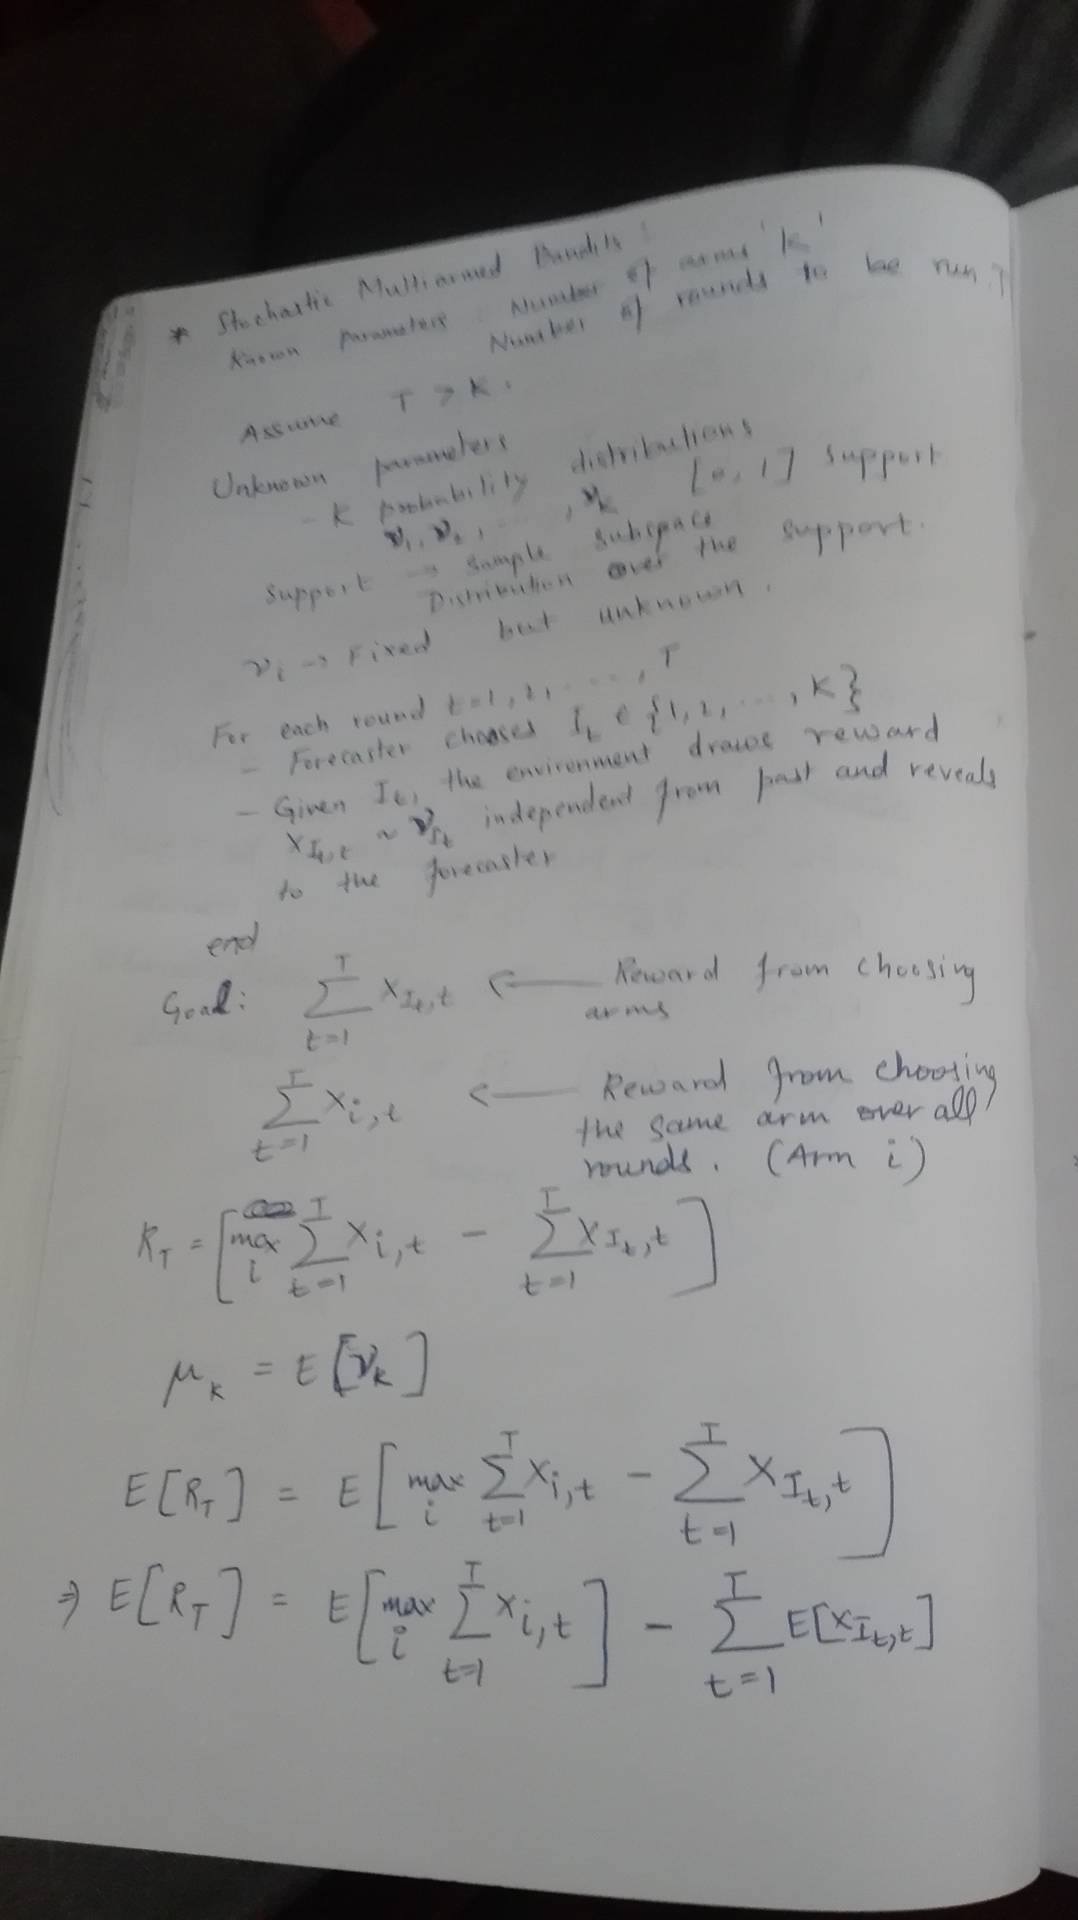 * Stochastic Multiarmed Bandits:
Known parameters: Number of arms 'k'
Number of rounds to be run T
Assume T > K.
Unknown parameters
- K probability distributions
ν₁, ν₂, ..., νₖ [0, 1] support
Support → Sample subspace
Distribution over the support.
νᵢ → Fixed but unknown.
For each round t=1, 2, ..., T
- Forecaster chooses I_t ∈ {1, 2, ..., K}
- Given I_t, the environment draws reward
X_{I_t,t} ~ ν_{I_t} independent from past and reveals
to the forecaster
end
Goal: \sum_{t=1}^{T} X_{I_t,t} ← Reward from choosing
arms
\sum_{t=1}^{T} X_{i,t} ← Reward from choosing
the same arm over all
rounds. (Arm i)
R_T = [max_i \sum_{t=1}^{T} X_{i,t} - \sum_{t=1}^{T} X_{I_t,t}]
μ_k = E[ν_k]
E[R_T] = E[max_i \sum_{t=1}^{T} X_{i,t} - \sum_{t=1}^{T} X_{I_t,t}]
⇒ E[R_T] = E[max_i \sum_{t=1}^{T} X_{i,t}] - \sum_{t=1}^{T} E[X_{I_t,t}]